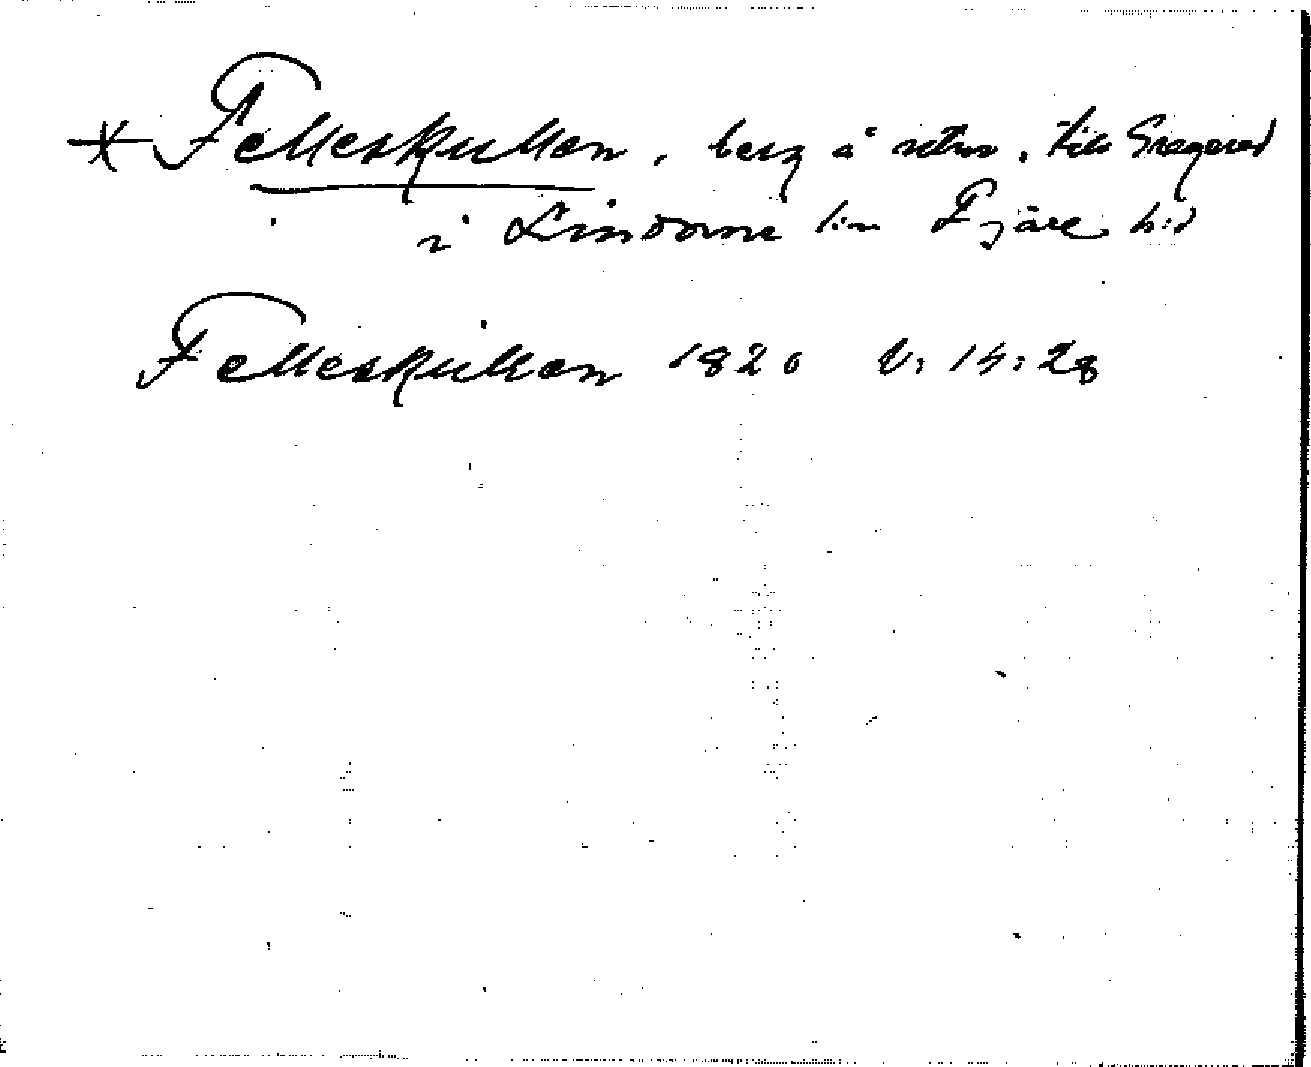 * Felleskullen, berg å utm. till Greggered
i Lindome sn Fjäre hd
Felleskullen 1820 V. 14:28